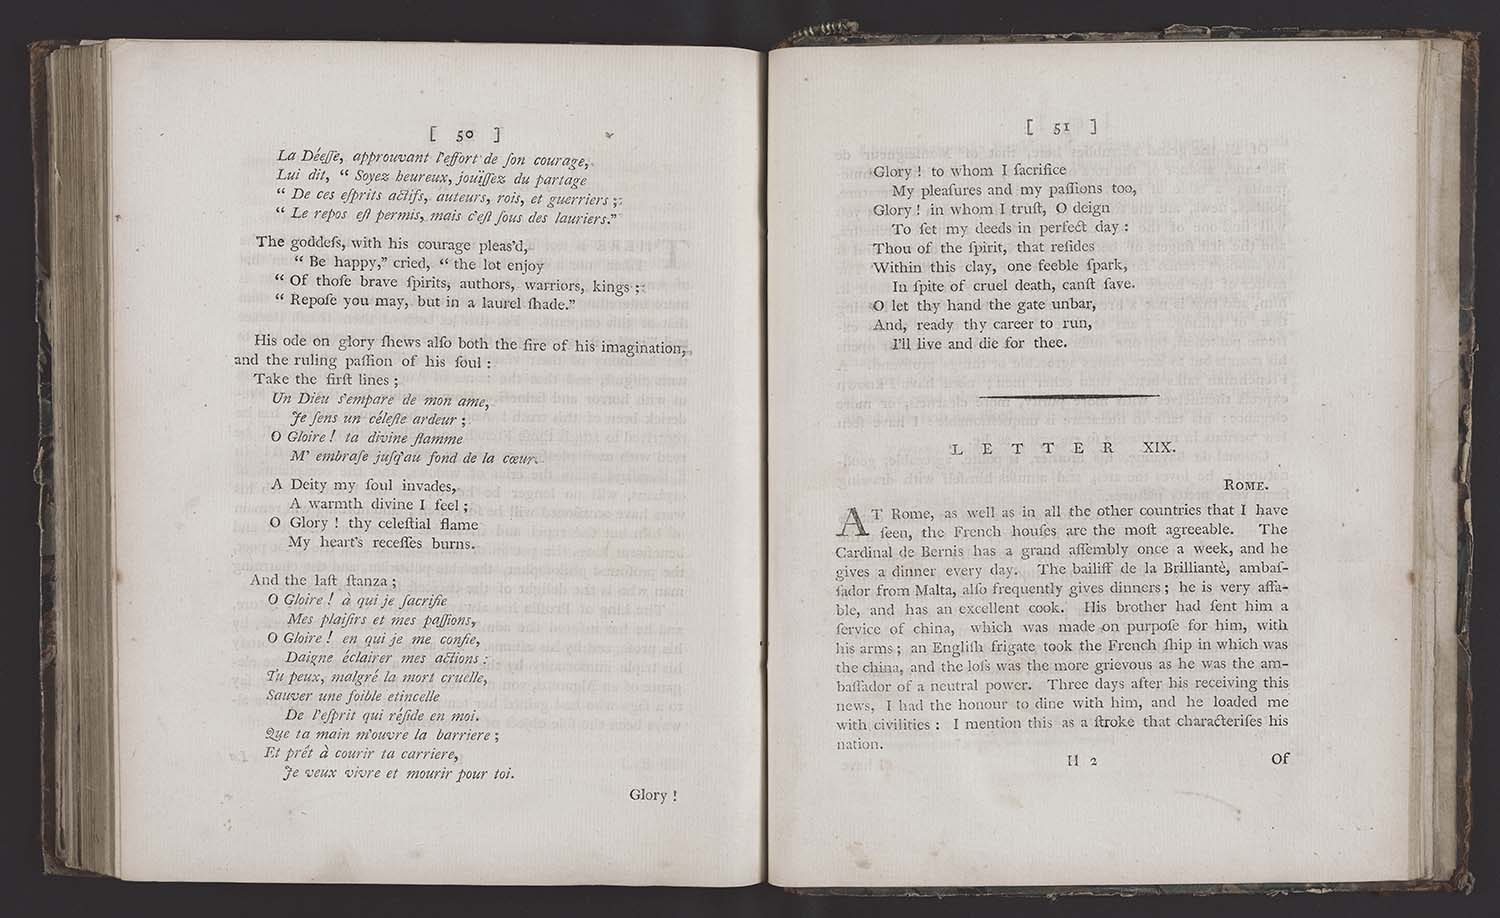 [ 50 ]
La Déeſſe, approuvant l'effort de ſon courage,
Lui dit, “ Soyez heureux, jouïſſez du partage
“ De ces eſprits actifs, auteurs, rois, et guerriers ;
“ Le repos eſt permis, mais c'eſt ſous des lauriers.”
The goddeſs, with his courage pleas'd,
“ Be happy,” cried, “ the lot enjoy
“ Of thoſe brave ſpirits, authors, warriors, kings ;
“ Repoſe you may, but in a laurel ſhade.”
His ode on glory ſhews alſo both the fire of his imagination,
and the ruling paſſion of his ſoul :
Take the firſt lines ;
Un Dieu s'empare de mon ame,
Je ſens un céleſte ardeur ;
O Gloire ! ta divine flamme
M' embraſe juſq'au fond de la cœur.
A Deity my ſoul invades,
A warmth divine I feel ;
O Glory ! thy celeſtial flame
My heart's receſſes burns.
And the laſt ſtanza ;
O Gloire ! à qui je ſacrifie
Mes plaiſirs et mes paſſions,
O Gloire ! en qui je me confie,
Daigne éclairer mes actions :
Tu peux, malgré la mort cruelle,
Sauver une foible etincelle
De l'eſprit qui réſide en moi.
Que ta main m'ouvre la barriere ;
Et prêt à courir ta carriere,
Je veux vivre et mourir pour toi.
Glory !
[ 51 ]
Glory ! to whom I ſacrifice
My pleaſures and my paſſions too,
Glory ! in whom I truſt, O deign
To ſet my deeds in perfect day :
Thou of the ſpirit, that reſides
Within this clay, one feeble ſpark,
In ſpite of cruel death, canſt ſave.
O let thy hand the gate unbar,
And, ready thy career to run,
I'll live and die for thee.
LETTER XIX.
ROME.
AT Rome, as well as in all the other countries that I have
ſeen, the French houſes are the moſt agreeable. The
Cardinal de Bernis has a grand aſſembly once a week, and he
gives a dinner every day. The bailiff de la Brilliantè, ambaſ-
ſador from Malta, alſo frequently gives dinners ; he is very affa-
ble, and has an excellent cook. His brother had ſent him a
ſervice of china, which was made on purpoſe for him, with
his arms ; an Engliſh frigate took the French ſhip in which was
the china, and the loſs was the more grievous as he was the am-
baſſador of a neutral power. Three days after his receiving this
news, I had the honour to dine with him, and he loaded me
with civilities : I mention this as a ſtroke that characteriſes his
nation.
H 2
Of